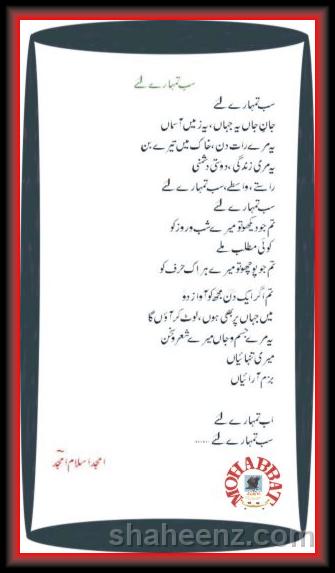 سب تمہارے لئے
سب تمہارے لئے
جانِ جاں یہ جہاں، یہ زمیں آسماں
یہ مرے رات دن، خاک میں تیرے بن
یہ مری زندگی، دوستی دشمنی
راستے، واسطے، سب تمہارے لئے
سب تمہارے لئے
تم جو دیکھو تو میرے شب و روز کو
کوئی مطلب ملے
تم جو پوچھو تو میرے ہر اک حرف کو
تم اگر ایک دن مجھ کو آواز دو
میں جہاں پر بھی ہوں، لوٹ کر آؤں گا
یہ مرے جسم و جاں میرے شعر و سخن
میری تنہائیاں
بزم آرائیاں
اب تمہارے لئے
سب تمہارے لئے ......
امجد اسلام امجد
MOHABBAT
shaheenz.com